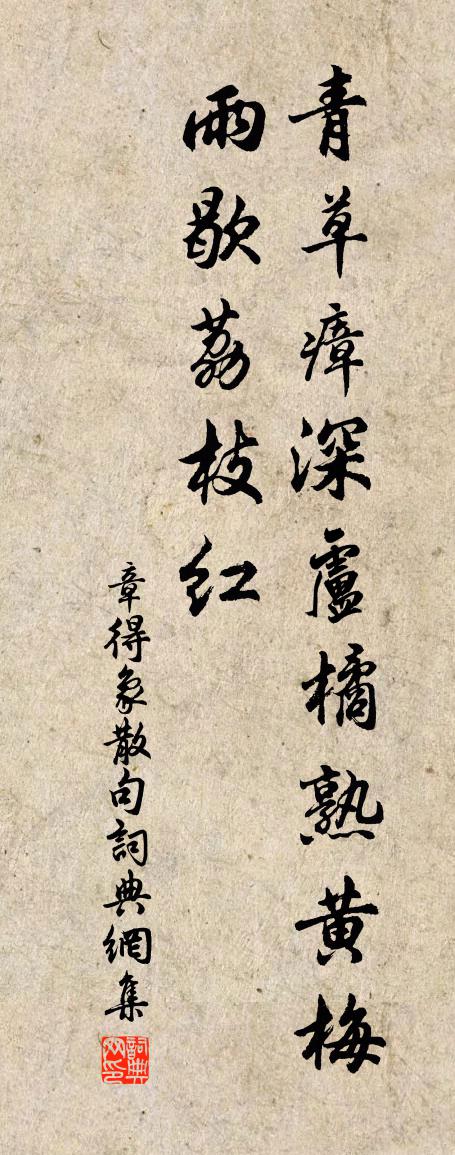 青草瘴深盧橘熟黃梅
雨歇荔枝紅
章得象散句詞典網集
詞典网印